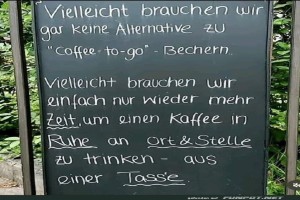 Vielleicht brauchen wir
gar keine Alternative zu
"Coffee-to-go"-Bechern.
Vielleicht brauchen wir
einfach nur wieder mehr
Zeit, um einen Kaffee in
Ruhe an Ort & Stelle
zu trinken - aus
einer Tasse.